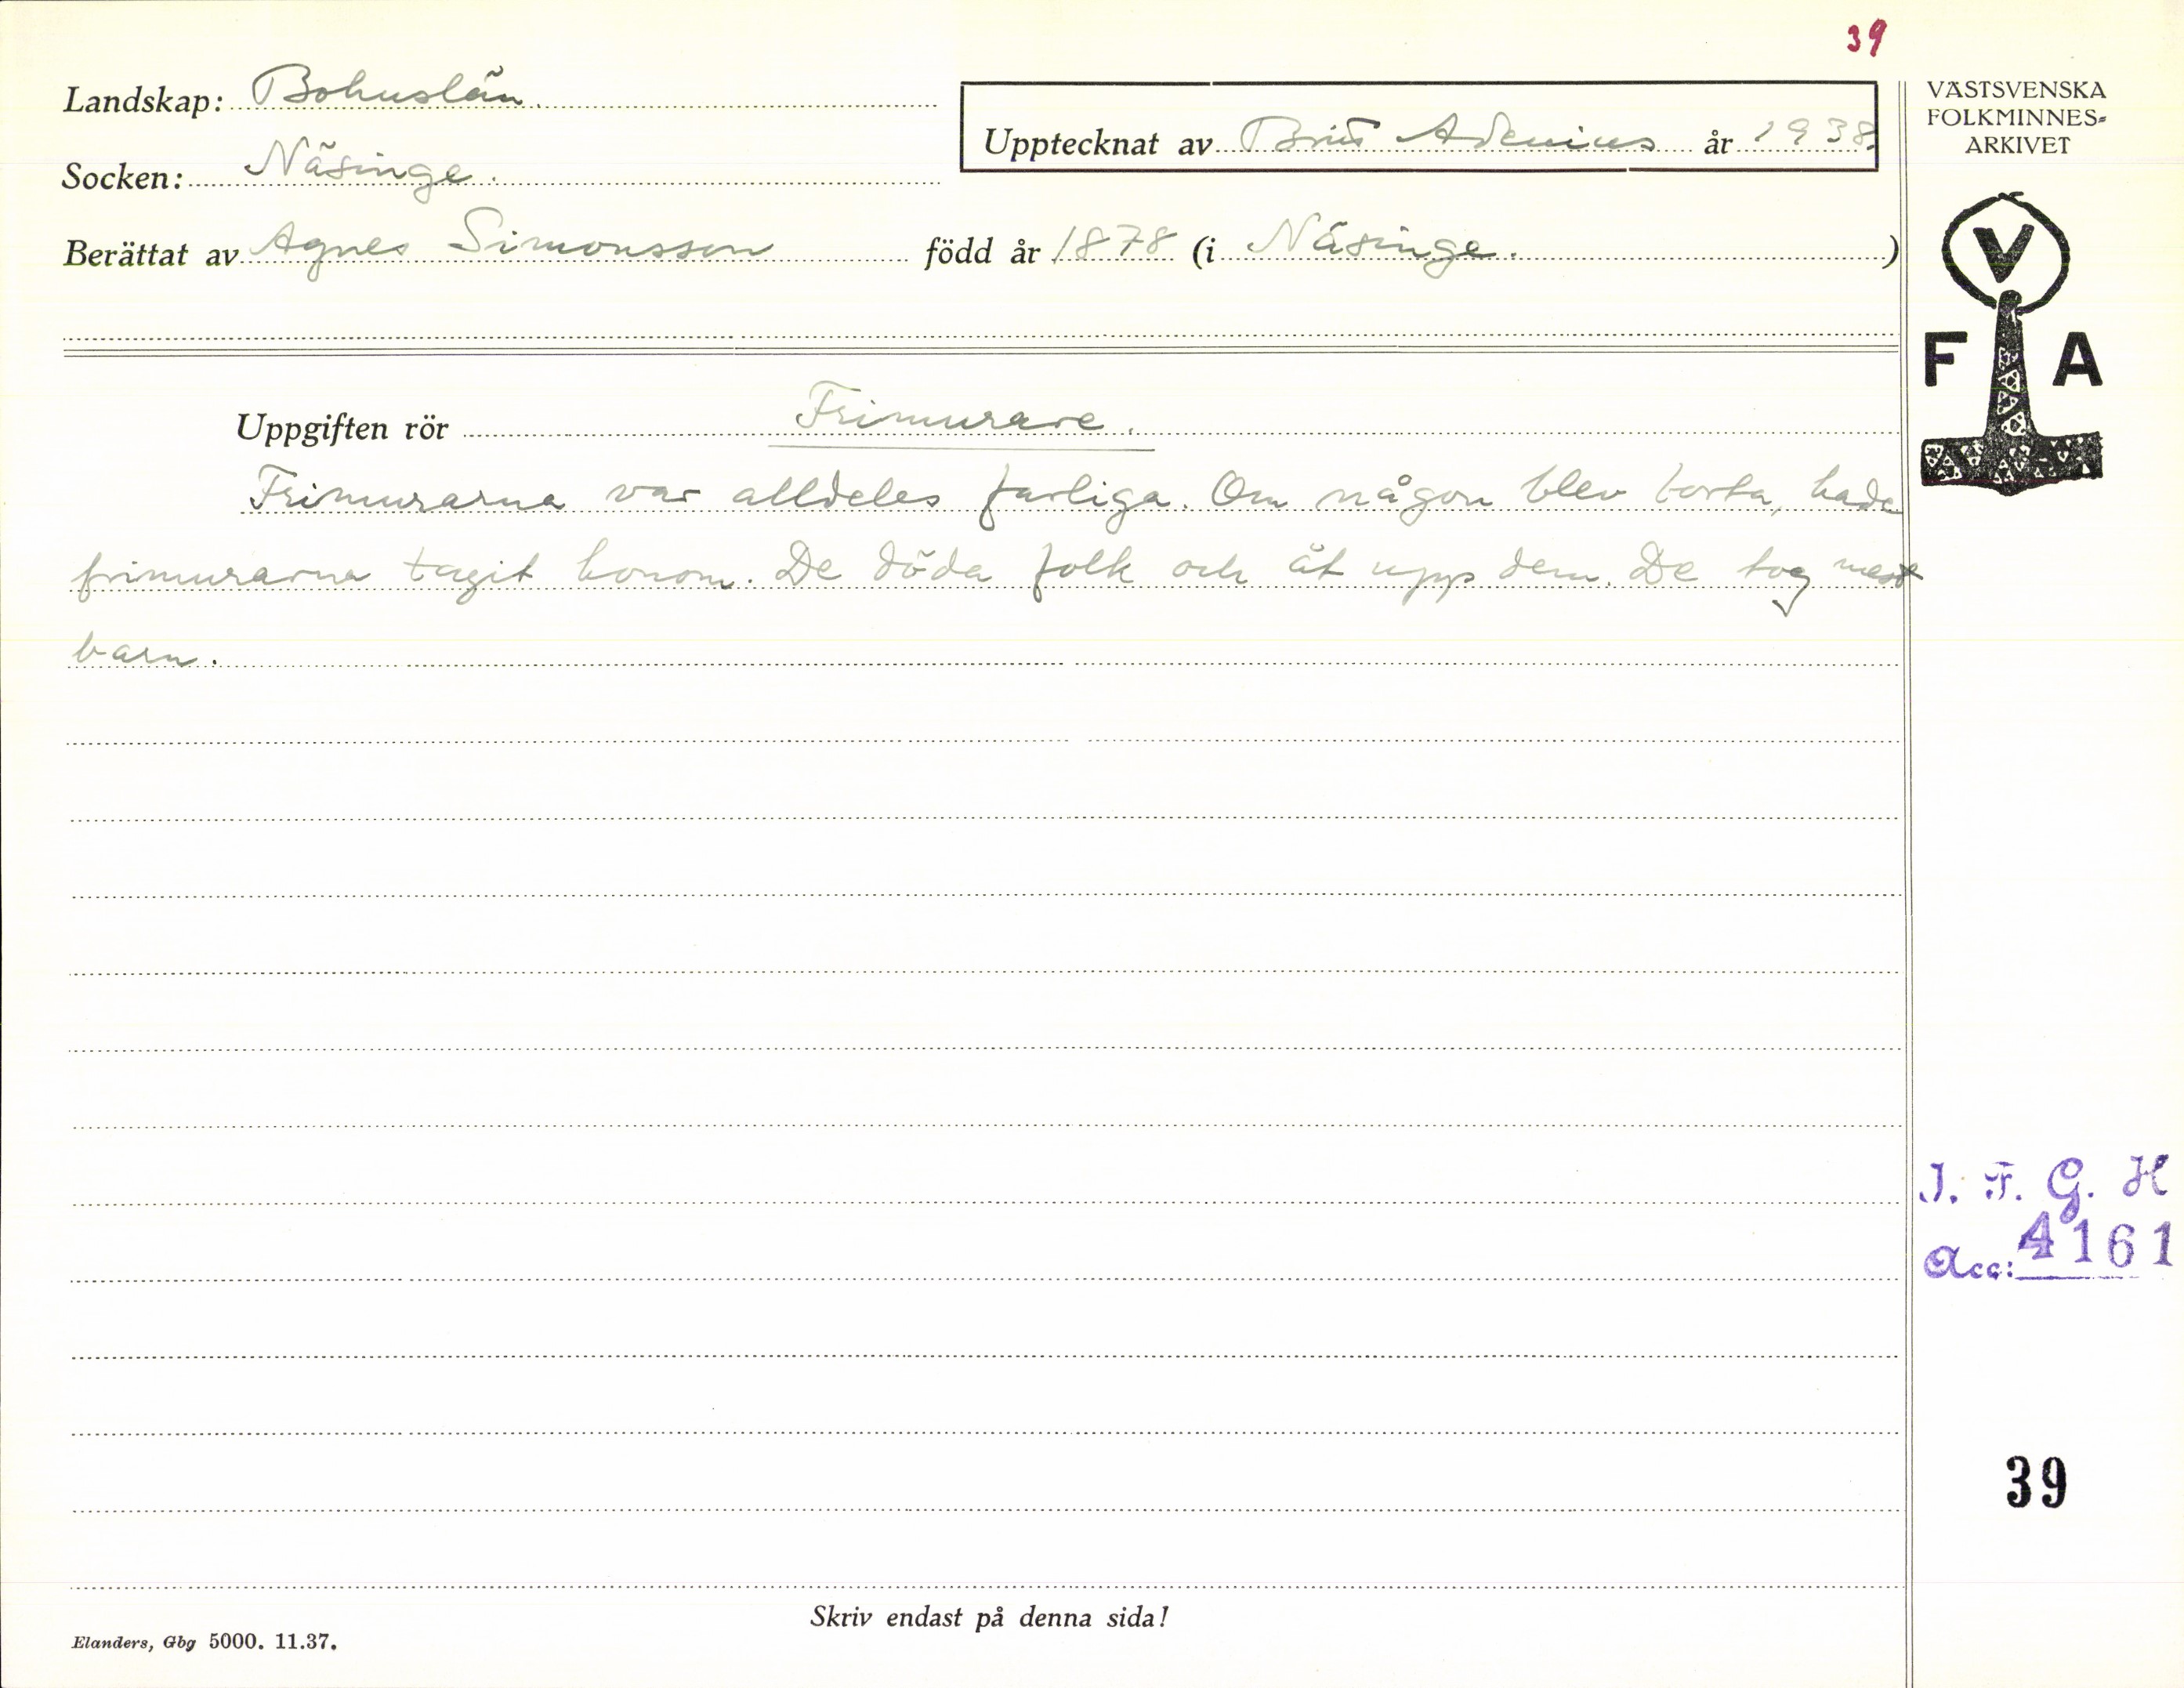 39
Landskap: Bohuslän.
Upptecknat av Britt Adenius år 1938.
Socken: Näsinge.
Berättat av Agnes Simonsson född år 1878 (i Näsinge. )
VÄSTSVENSKA
FOLKMINNES=
ARKIVET
V
F A
Uppgiften rör Frimurare.
Frimurarna var alldeles farliga. Om någon blev borta, hade
frimurarna tagit honom. De döda folk och åt upp dem. De tog mest
barn.
J. F. G. H
Acc: 4161
39
Skriv endast på denna sida!
Elanders, Gbg 5000. 11.37.